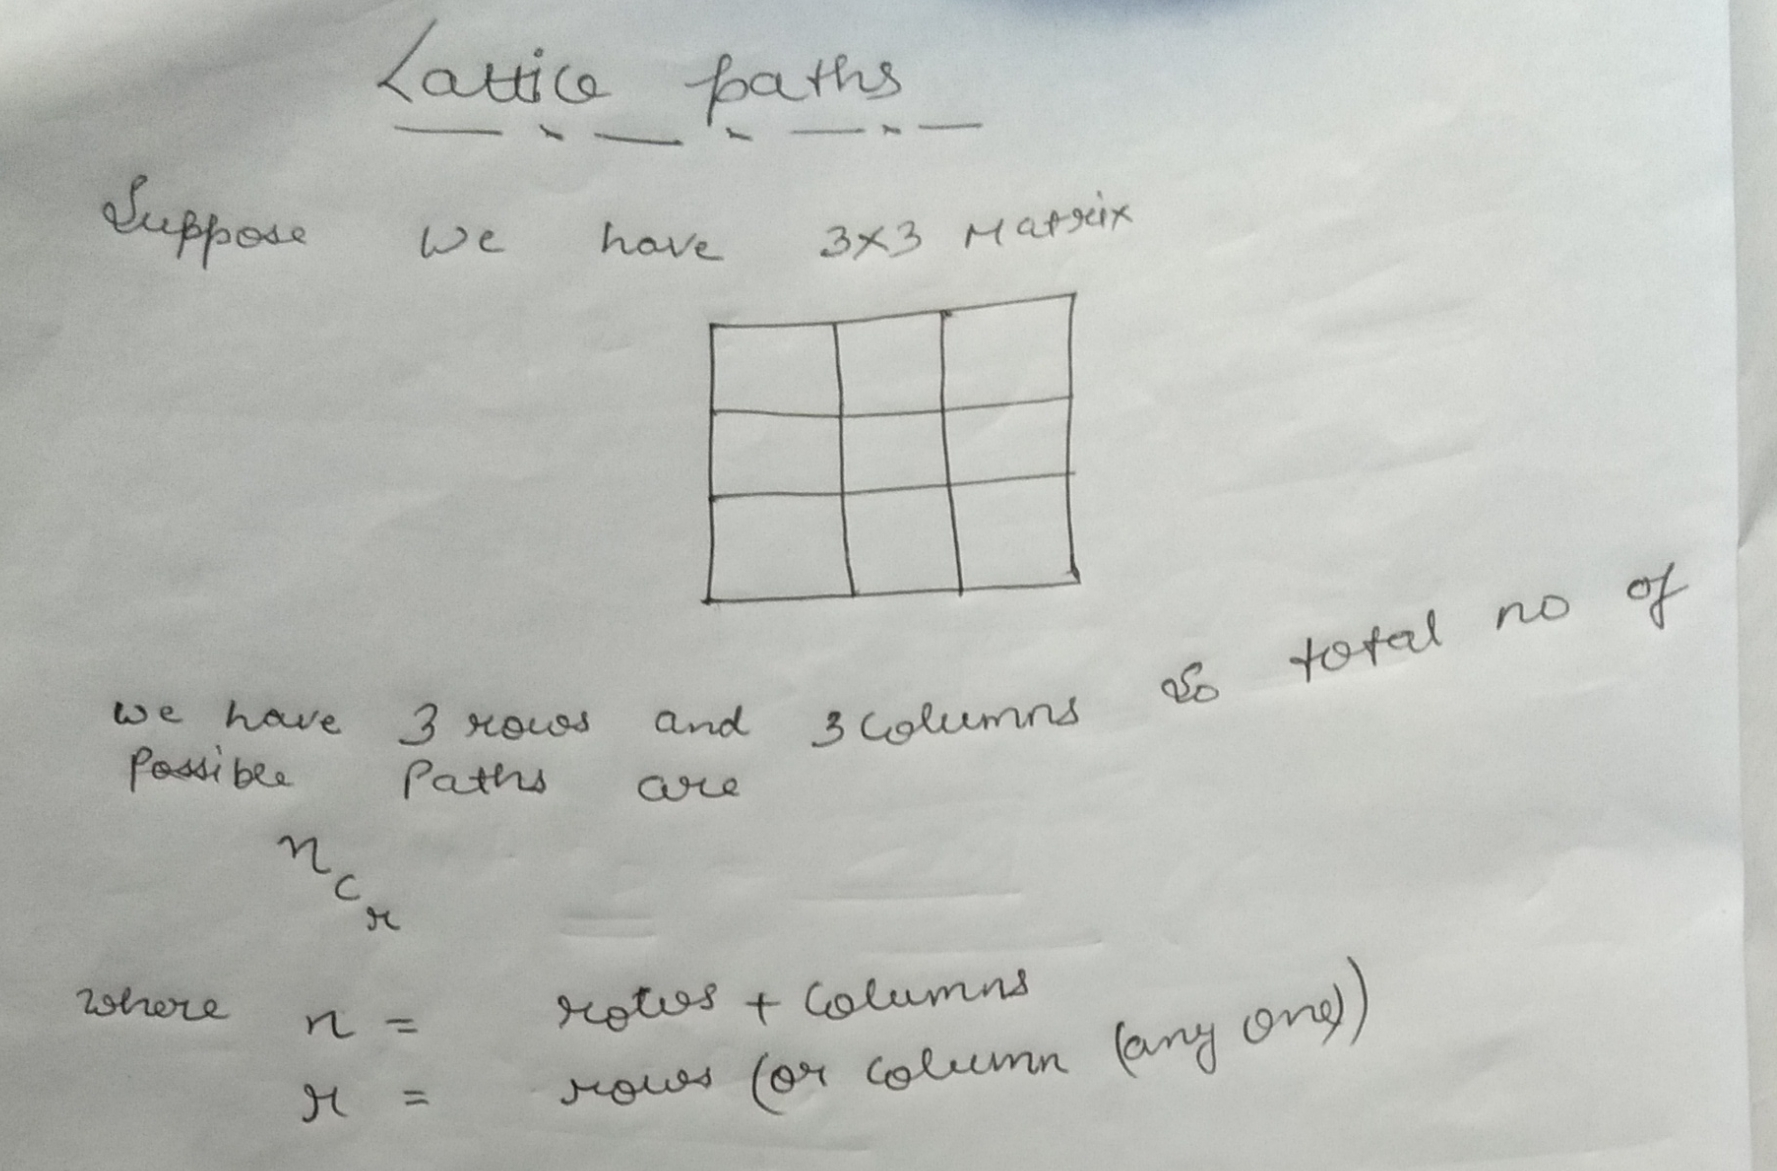 Lattice paths
Suppose we have 3x3 Matrix
we have 3 rows and 3 columns so total no of
Possible Paths are
n
c
r
where n = rows + columns
r = rows (or column (any one))